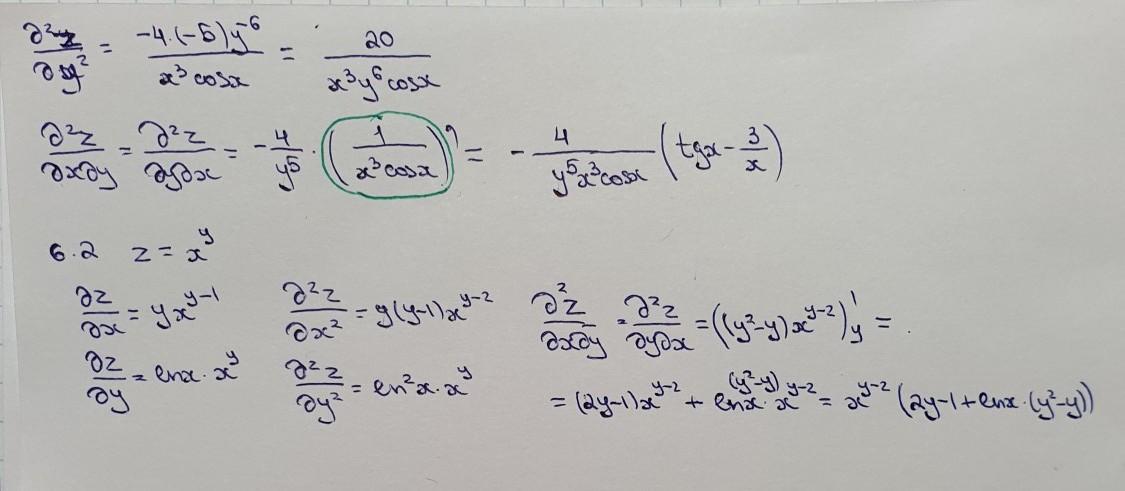 ∂²z/∂y² = -4·(-5)y⁻⁶/x³cosx = 20/x³y⁶cosx
∂²z/∂x∂y = ∂²z/∂y∂x = -4/y⁵ · (1/x³cosx)' = -4/y⁵x³cosx (tgx - 3/x)
6.2 z = x^y
∂z/∂x = yx^(y-1) ∂²z/∂x² = y(y-1)x^(y-2) ∂²z/∂x∂y = ∂²z/∂y∂x = ((y²-y)x^(y-2))'_y =
∂z/∂y = lnx·x^y ∂²z/∂y² = ln²x·x^y = (2y-1)x^(y-2) + lnx·(y²-y)x^(y-2) = x^(y-2) (2y-1+lnx·(y²-y))